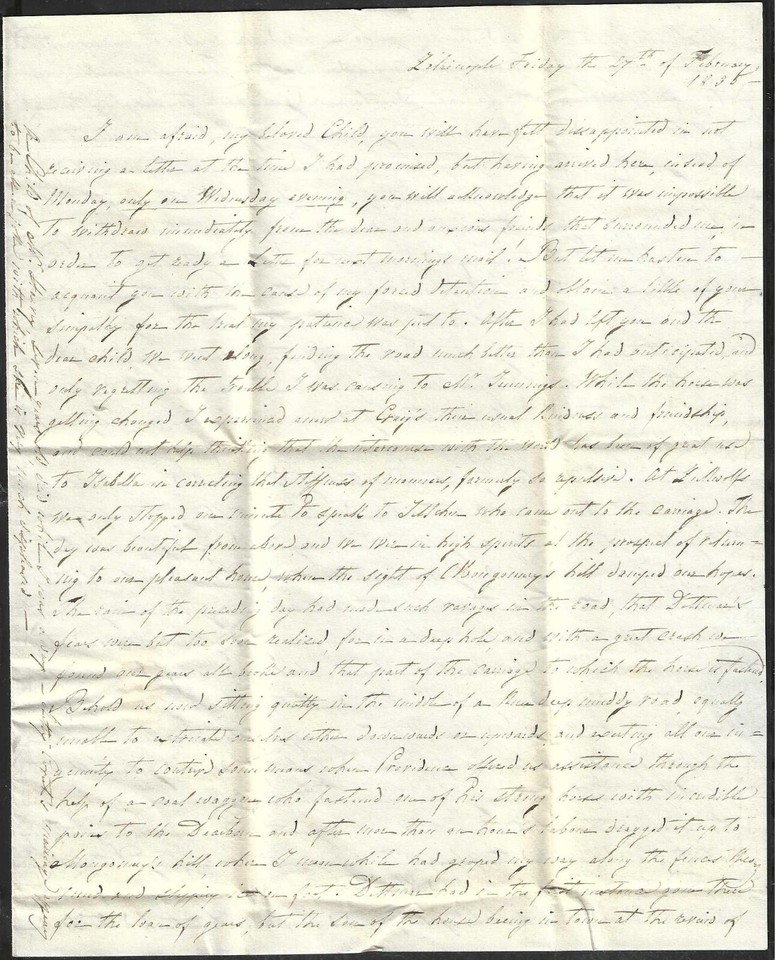 Zelienople Friday the 27th of February
1835 —
I am afraid, my beloved Child, you will have felt disappointed in not
receiving a letter at the time I had promised, but having arrived here, instead of
Monday, only on Wednesday evening, you will acknowledge that it was impossible
to withdraw immediately from the dear and anxious friends that surrounded me, in
order to get ready a letter for next mornings mail! But let me hasten to —
acquaint you with the cause of my forced detention and obtain a little of your
simpathy for the trial my patience was put to. After I had left you and the
dear child, we went along, finding the road much better than I had anticipated, and
only regretting the trouble I was causing to Mr. Jennings. While the horse was
getting changed I experienced anew at Craig's their usual kindness and friendship,
and could not help thinking that the intercourse with the world has been of great use
to Isabella in correcting that stiffness of manners, formerly so repulsive. At
we only stopped one minute to speak to who came out to the carriage. The
day was beautiful from above and we were in high spirits at the prospect of return=
ing to our pleasant home, when the sight of Montgomery's hill damped our hopes.
The rain of the preceding day had made such ravages in the road, that Dettmar's
fears were but too soon realised, for in a deep hole and with a great crash we
found our gears all broke and that part of the carriage to which the horse is fastened.
Behold us now sitting quietly in the middle of a knee deep muddy road, equally
unable to extricate ourselves either downwards or upwards, and exerting all our in=
genuity to contrive some means when Providence offered us assistance through the
help of a coal waggoner who fastened one of his strong horses with incredible
pains to the Dearborn and after more than an hour's labour dragged it up to
Montgomery's hill, where I mean while had groped my way along the fences
and slipping in on foot. Dettmar had in the first instance gone there
for the loan of gears, but the son of the house being in town at the review of
to be
with which she is very much